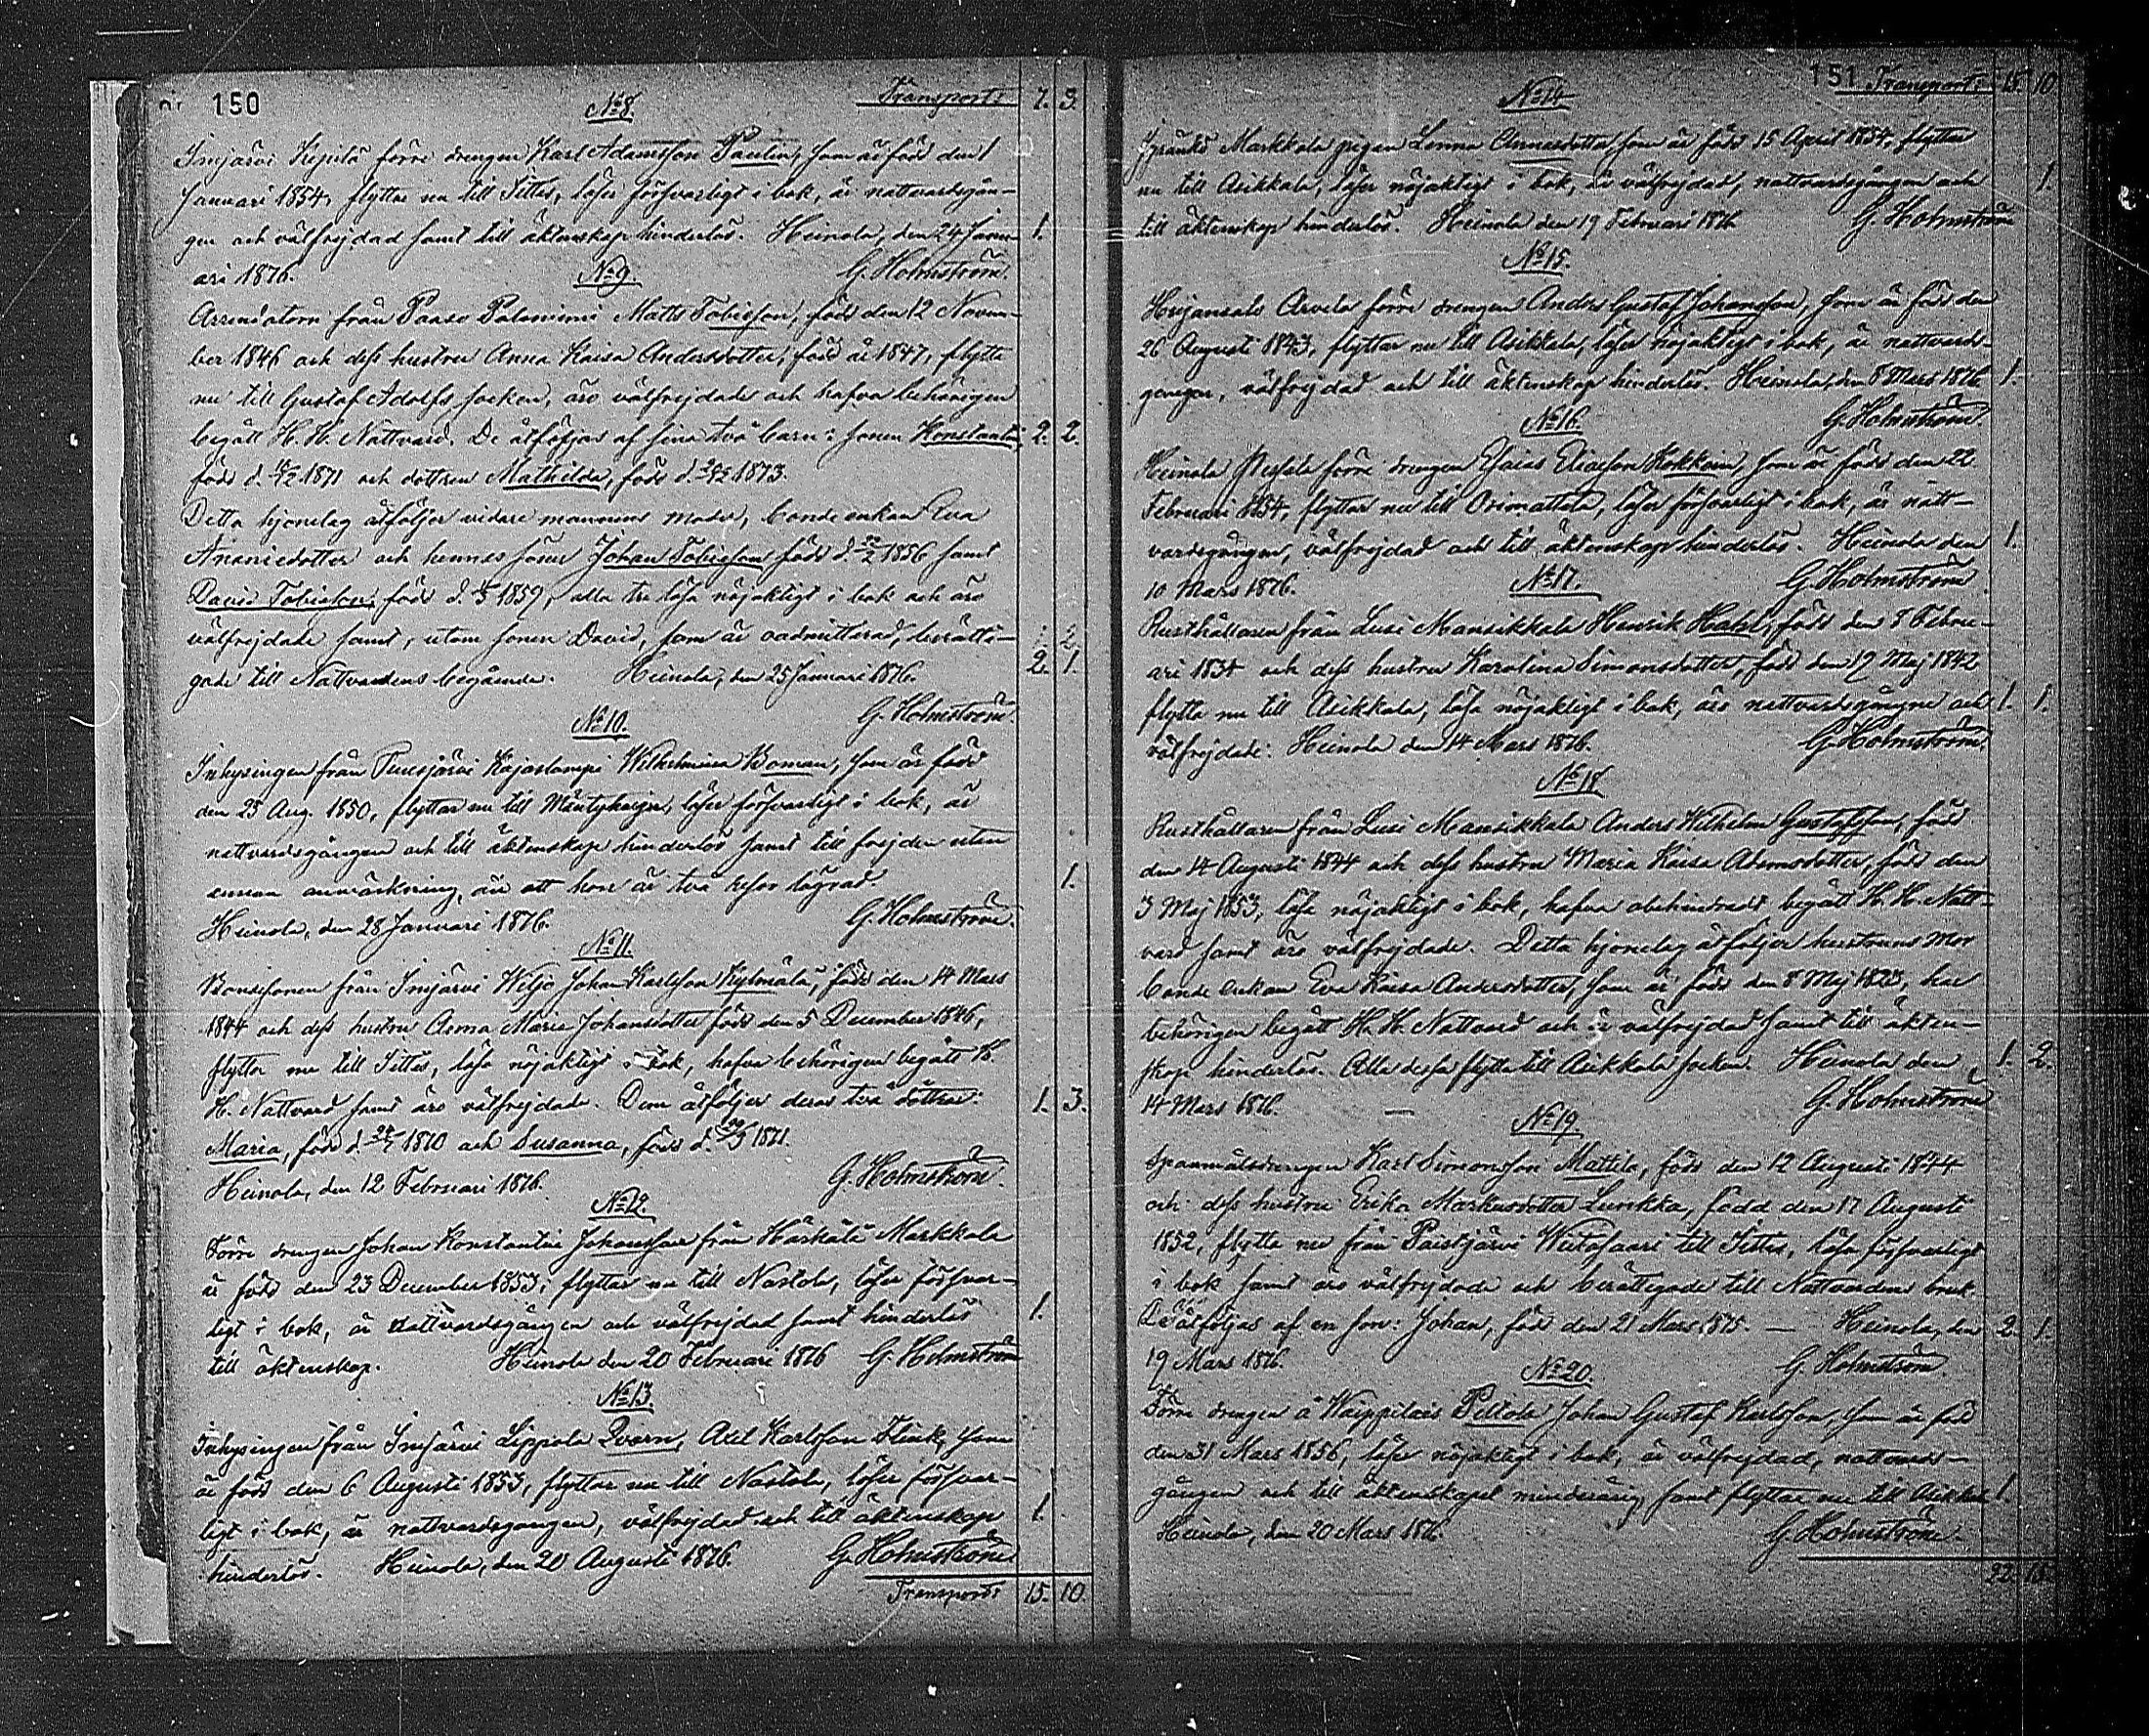 150
Transport: 7. 3.
No 8.
Imjärvi Kepilä förre drengen Karl Adamsson Paulin, som är född den 1
Januari 1854, flyttar nu till Sittis, läser försvarligt i bok, är nattvardsgån-
gen och välfrejdad samt till äktenskap hinderlös. Heinola, den 24 Janu- 1.
ari 1876. G. Holmström.
No 9.
Arrendatorn från Paaso Matts Tobiesson, född den 12 Novem-
ber 1846 och dess hustru Anna Kaisa Andersdotter, född år 1847, flytta
nu till Gustaf Adolfs socken, äro välfrejdade och hafva behörigen
begått H. H. Nattvard. De åtföljas af sina två barn: sonen Konstantin, 2. 2.
född d. 1871 och dottren Mathilda, född d. 1873.
Detta hjonelag åtföljer vidare mannens moder, bonde enkan Eva
Ananiedotter och hennes söner Johan Tobiesson född d. 1856 samt
David Tobiesson, född d. 1859, alla tre läsa nöjaktigt i bok och äro
välfrejdade samt, utom sonen David, som är oadmitterad, berätti-
gade till Nattvardens begående. Heinola, den 25 Januari 1876. 2. 1.
G. Holmström.
No 10.
Inhysingen från Kajaslampi Wilhelmina Boman, som är född
den 25 Aug. 1850, flyttar nu till Mäntyharju, läser försvarligt i bok, är
nattvardsgången och till äktenskap hinderlös samt till frejden utan
annan anmärkning, än att hon är två resor lägrad. 1.
Heinola, den 28 Januari 1876. G. Holmström.
No 11.
Bondesonen från Imjärvi Wiljo Johan Karlsson Kylmälä, född den 14 Mars
1844 och dess hustru Anna Maria Johansdotter född den 5 December 1846,
flytta nu till Sittis, läsa nöjaktigt i bok, hafva behörigen begått H.
H. Nattvard samt äro välfrejdade. Dem åtföljer deras två döttrar: 1. 3.
Maria, född d. 1870 och Susanna, född d. 1871.
Heinola, den 12 Februari 1876. G. Holmström.
No 12.
Förre drengen Johan Konstantin Johansson från Härkälä Markkola
är född den 23 December 1853, flyttar nu till Nastola, läser försvar-
ligt i bok, är nattvardsgången och välfrejdad samt hinderlös 1.
till äktenskap. Heinola den 20 Februari 1876 G. Holmström
No 13.
Inhysingen från Imjärvi Leppälä Qvarn, Axel Karlsson Flink, som
är född den 6 Augusti 1853, flyttar nu till Nastola, läser försvar-
ligt i bok, är nattvardsgången, välfrejdad och till äktenskap 1.
hinderlös. Heinola, den 20 Augusti 1876. G. Holmström
Transport: 15. 10.
151 Transport: 15. 10
No 14.
Markkola pigan Lenna Annasdotter, som är född 15 April 1854, flyttar
nu till Asikkala, läser nöjaktigt i bok, är välfrejdad, nattvardsgången och 1.
till äktenskap hinderlös. Heinola den 19 Februari 1876 G. Holmström
No 15.
Heijansalo Arvela förre drengen Anders Gustaf Johansson, som är född den
26 Augusti 1843, flyttar nu till Asikkala, läser nöjaktigt i bok, är nattvards-
gången, välfrejdad och till äktenskap hinderlös. Heinola, den 8 Mars 1876 1.
G. Holmström.
No 16.
Heinola förre drengen Esaias Eliasson Kokkoin, som är född den 22
Februari 1854, flyttar nu till Orimattila, läser försvarligt i bok, är natt-
vardsgången, välfrejdad och till äktenskap hinderlös. Heinola den 1.
10 Mars 1876. G. Holmström
No 17.
Rusthållaren från Lusi Mansikkala Henrik Hahl, född den 8 Febru-
ari 1834 och dess hustru Karolina Simonsdotter, född den 19 Maj 1842
flytta nu till Asikkala, läsa nöjaktigt i bok, äro nattvardsgångne och 1. 1.
välfrejdade. Heinola den 14 Mars 1876. G. Holmström.
No 18.
Rusthållaren från Lusi Mansikkala Anders Wilhelm Gustafsson, född
den 14 Augusti 1844 och dess hustru Maria Kaisa Adamsdotter, född den
3 Maj 1853, läsa nöjaktigt i bok, hafva obehindradt begått H. H. Natt-
vard samt äro välfrejdade. Detta hjonelag åtföljer hustruns mor
bonde enkan Eva Kaisa Andersdotter, som är född den 8 Maj 1823, har
behörigen begått H. H. Nattvard och är välfrejdad samt till äkten-
skap hinderlös. Alla dessa flytta till Asikkala socken. Heinola den 1. 2.
14 Mars 1876. G. Holmström
No 19.
Spanmålsdrengen Karl Simonsson Mattila, född den 12 Augusti 1844
och dess hustru Erika Markusdotter Lunkka, född den 17 Augusti
1852, flytta nu från Paistjärvi till Sittis, läsa försvarligt
i bok samt äro välfrejdade och berättigade till Nattvardens bruk.
De åtföljas af en son: Johan, född den 21 Mars 1875. — Heinola, den 2. 1.
19 Mars 1876. G. Holmström.
No 20.
Förre drengen å Waippilais Peltola Johan Gustaf Karlsson, som är född
den 31 Mars 1856, läser nöjaktigt i bok, är välfrejdad, nattvards-
gången och till äktenskapet minderårig samt flyttar nu till Asikkala 1.
Heinola, den 20 Mars 1876. G. Holmström
22. 15.